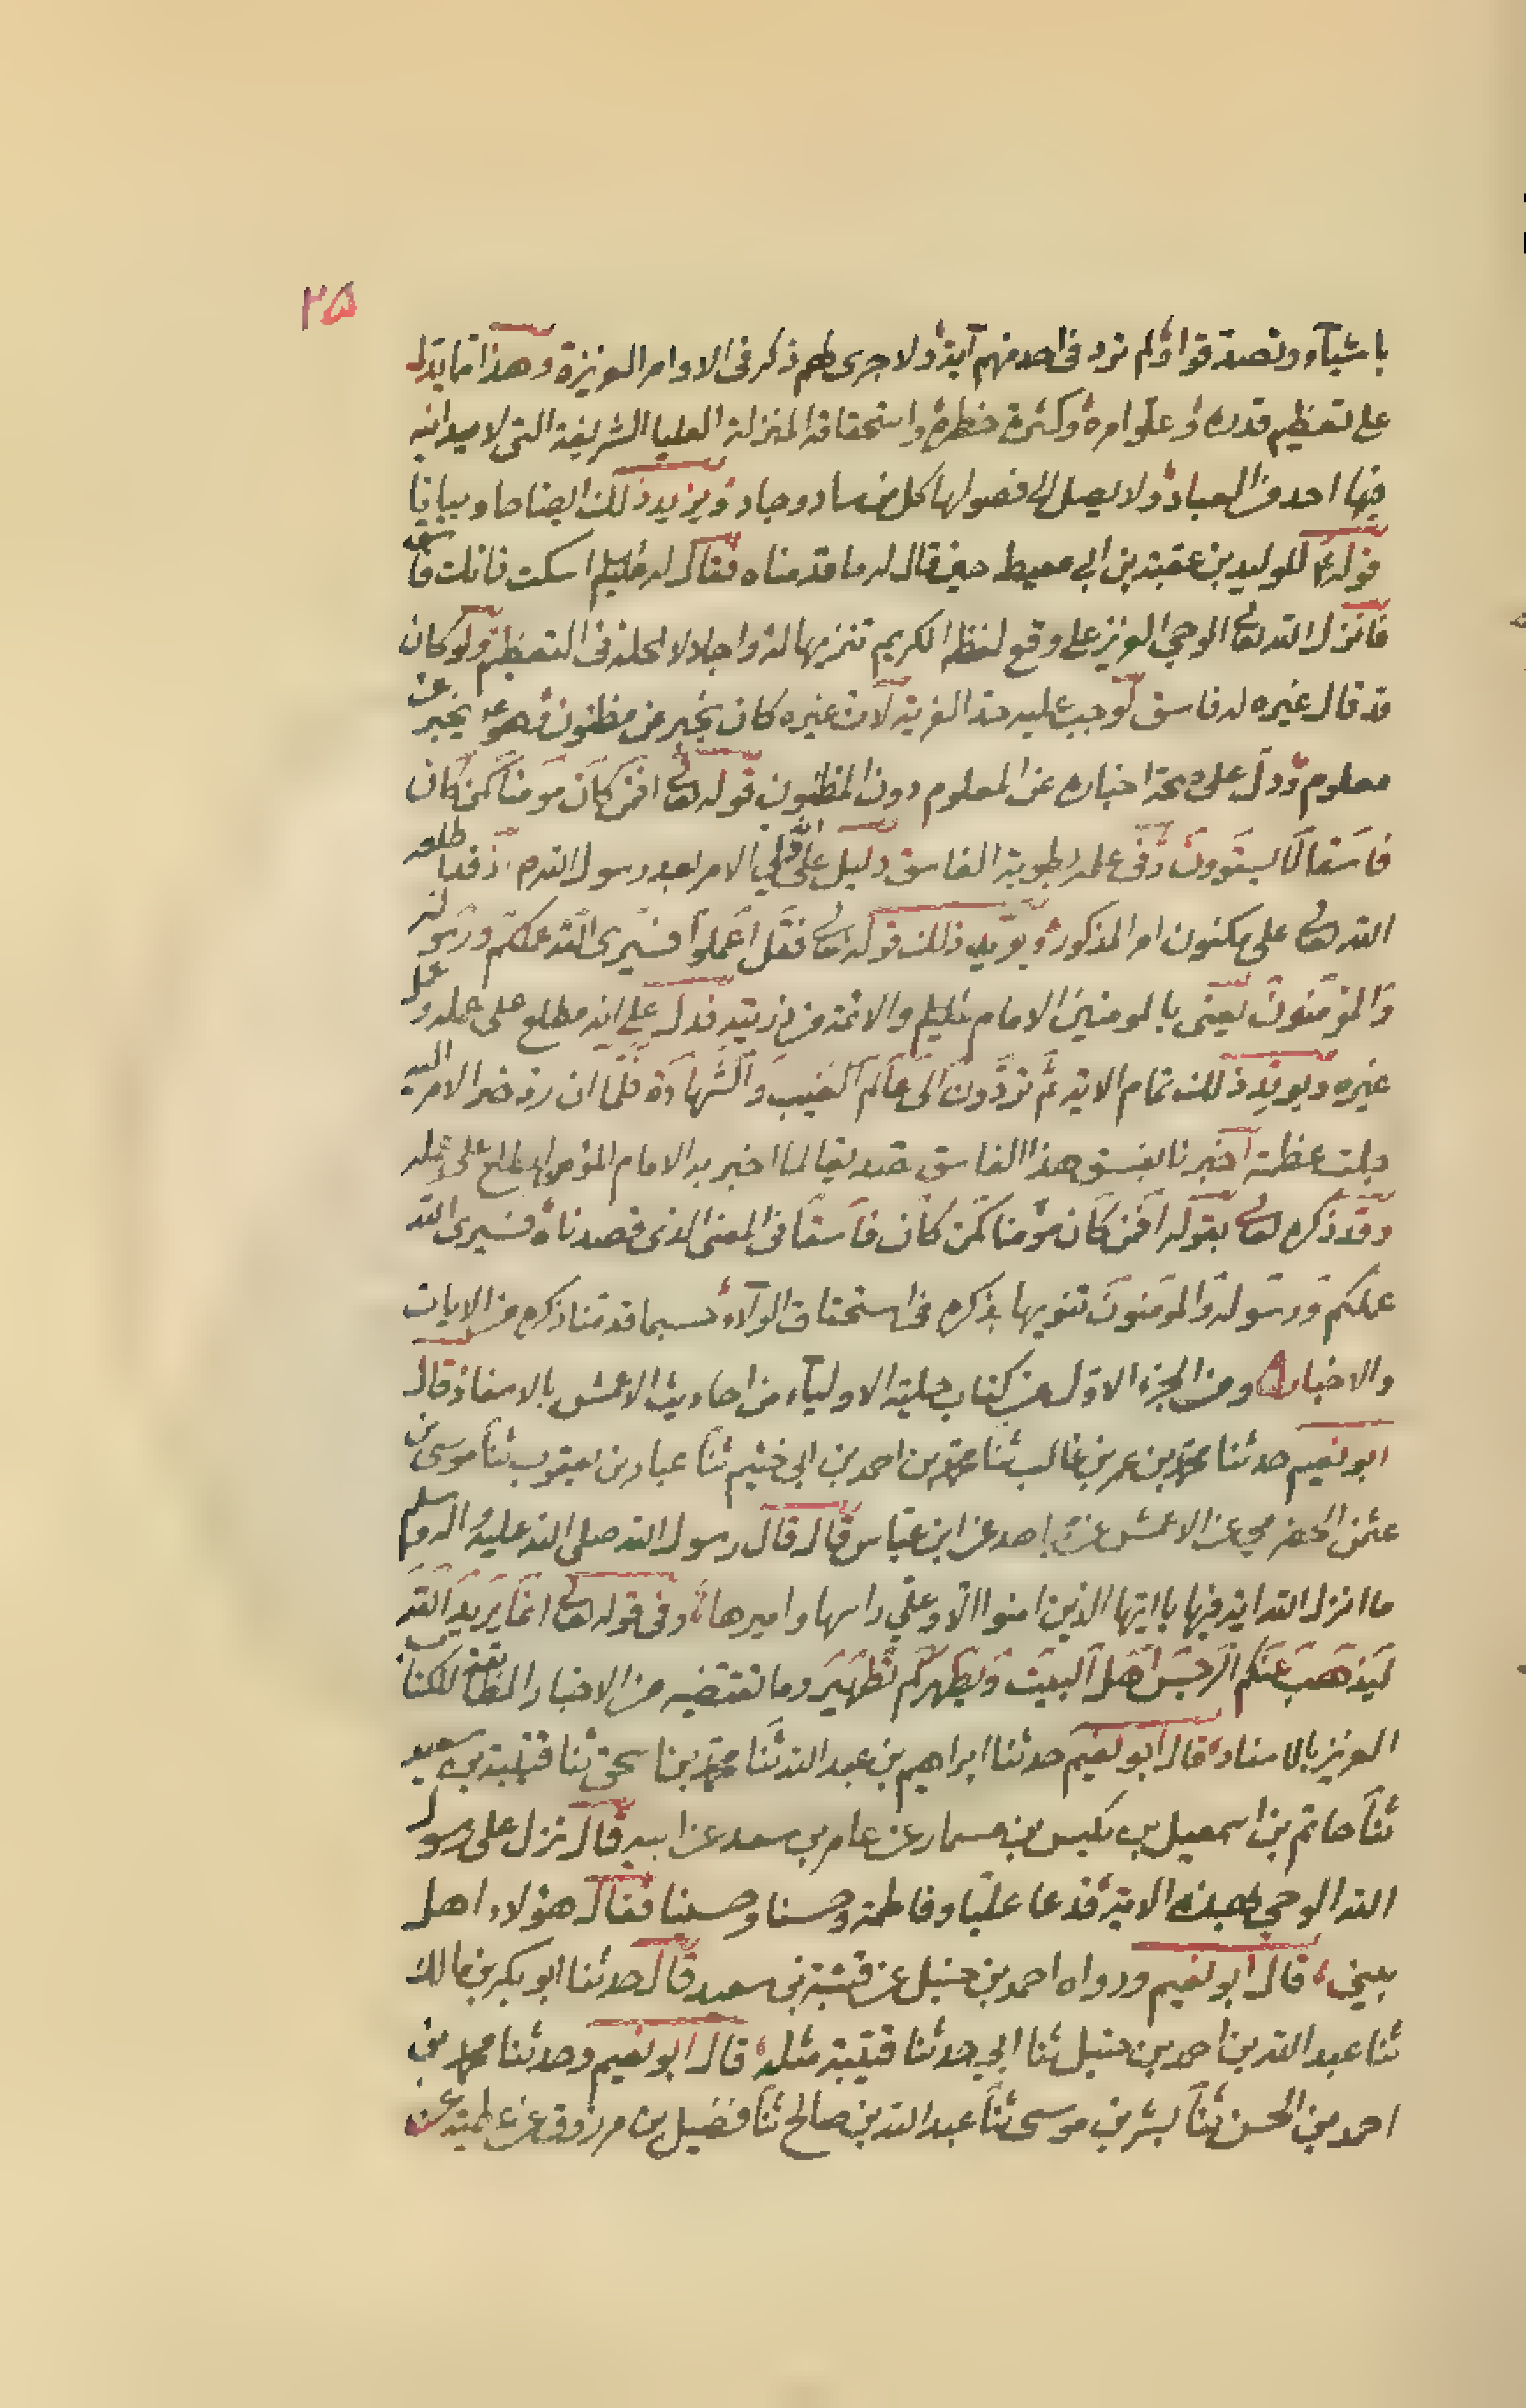 ٢٥
باشيآء وتصدقوا ولم ترد فى احد منهم آية ولا جرى لهم ذكر فى الاوامر العزيزة وهذا مما يدل
على تعظيم قدره وعلو امره وكثرة خطره واستحقاقه المنزلة العليا الشريفة التى لا يدانيه
فيها احد من العباد ولا يصل الى فصولها كل من ساد وجاد ويزيد ذلك ايضاحا وبيانا
قوله للوليد بن عقبة بن ابى معيط حين قال له ما قدمناه فقال له عليلم اسكت فانك فاسق
فانزل الله تعالى الوحى العزيز على وقع لفظه الكريم تنزيها له واجلالا لمحله فى التعظيم ولو كان
قد قال غيره له فاسق لوجب عليه حد الفرية لان غيره كان يخبر عن مظنون وهو يخبر عن
معلوم ودل على صحة اخباره عن المعلوم دون المظنون قوله تعالى افمن كان مؤمنا كمن كان
فاسقا لا يستوون وفى علمه بطوية الفاسق دليل على ولى الامر بعد رسول الله ص اذ قد اطلعه
الله تعالى على مكنون امر المذكور ويؤيد ذلك قوله تعالى فقل اعملوا فسيرى الله عملكم ورسوله
والمؤمنون يعنى بالمومنين الامام عليلم والائمة من ذريته فدل على انه مطلع على عمله وعمل
غيره ويؤيد ذلك تمام الاية ثم تردون الى عالم الغيب والشهادة فلما ان رد خبر الامر اليه
جلت عظمته اخبرنا بفسق هذا الفاسق تصديقا لما اخبر به الامام المؤمن المطلع على عمله
وقد ذكره تعالى بقوله افمن كان مؤمنا كمن كان فاسقا فى المعنى الذى قصدناه فسيرى الله
عملكم ورسوله والمؤمنون تنويها بذكره فى استحقاق الولاء حسبما قدمنا ذكره من الايات
والاخبار ومن الجزء الاول من كتاب حلية الاولياء من احاديث الاعمش بالاسناد قال
ابو نعيم حدثنا محمد بن عمر بن غالب ثنا محمد بن احمد بن ابى خثيم ثنا عباد بن يعقوب ثنا موسى بن
عثمن الحضرمى عن الاعمش عن مجاهد عن ابن عباس قال قال رسول الله صلى الله عليه واله وسلم
ما انزل الله اية فيها يا ايها الذين امنوا الا وعلى راسها واميرها وفى قوله تعالى انما يريد الله
ليذهب عنكم الرجس اهل البيت ويطهركم تطهيرا وما تقتضيه من الاخبار المطابقة للكتاب
العزيز بالاسناد قال ابو نعيم حدثنا ابراهيم بن عبد الله ثنا محمد بن اسحق ثنا قتيبة بن سعيد
ثنا حاتم بن اسمعيل بن بكيس بن مسمار عن عامر بن سعد عن ابيه قال نزل على رسول
الله الوحى بهذه الاية فدعا عليا وفاطمة وحسنا وحسينا فقال هؤلاء اهل
بيتى قال ابو نعيم ورواه احمد بن حنبل عن قتيبة بن سعيد قال حدثنا ابو بكر بن مالك
ثنا عبد الله بن احمد بن حنبل ثنا ابى حدثنا قتيبة مثله قال ابو نعيم وحدثنا محمد بن
احمد بن الحسن ثنا بشر بن موسى ثنا عبد الله بن صالح ثنا فضيل بن مرزوق عن عطية عن